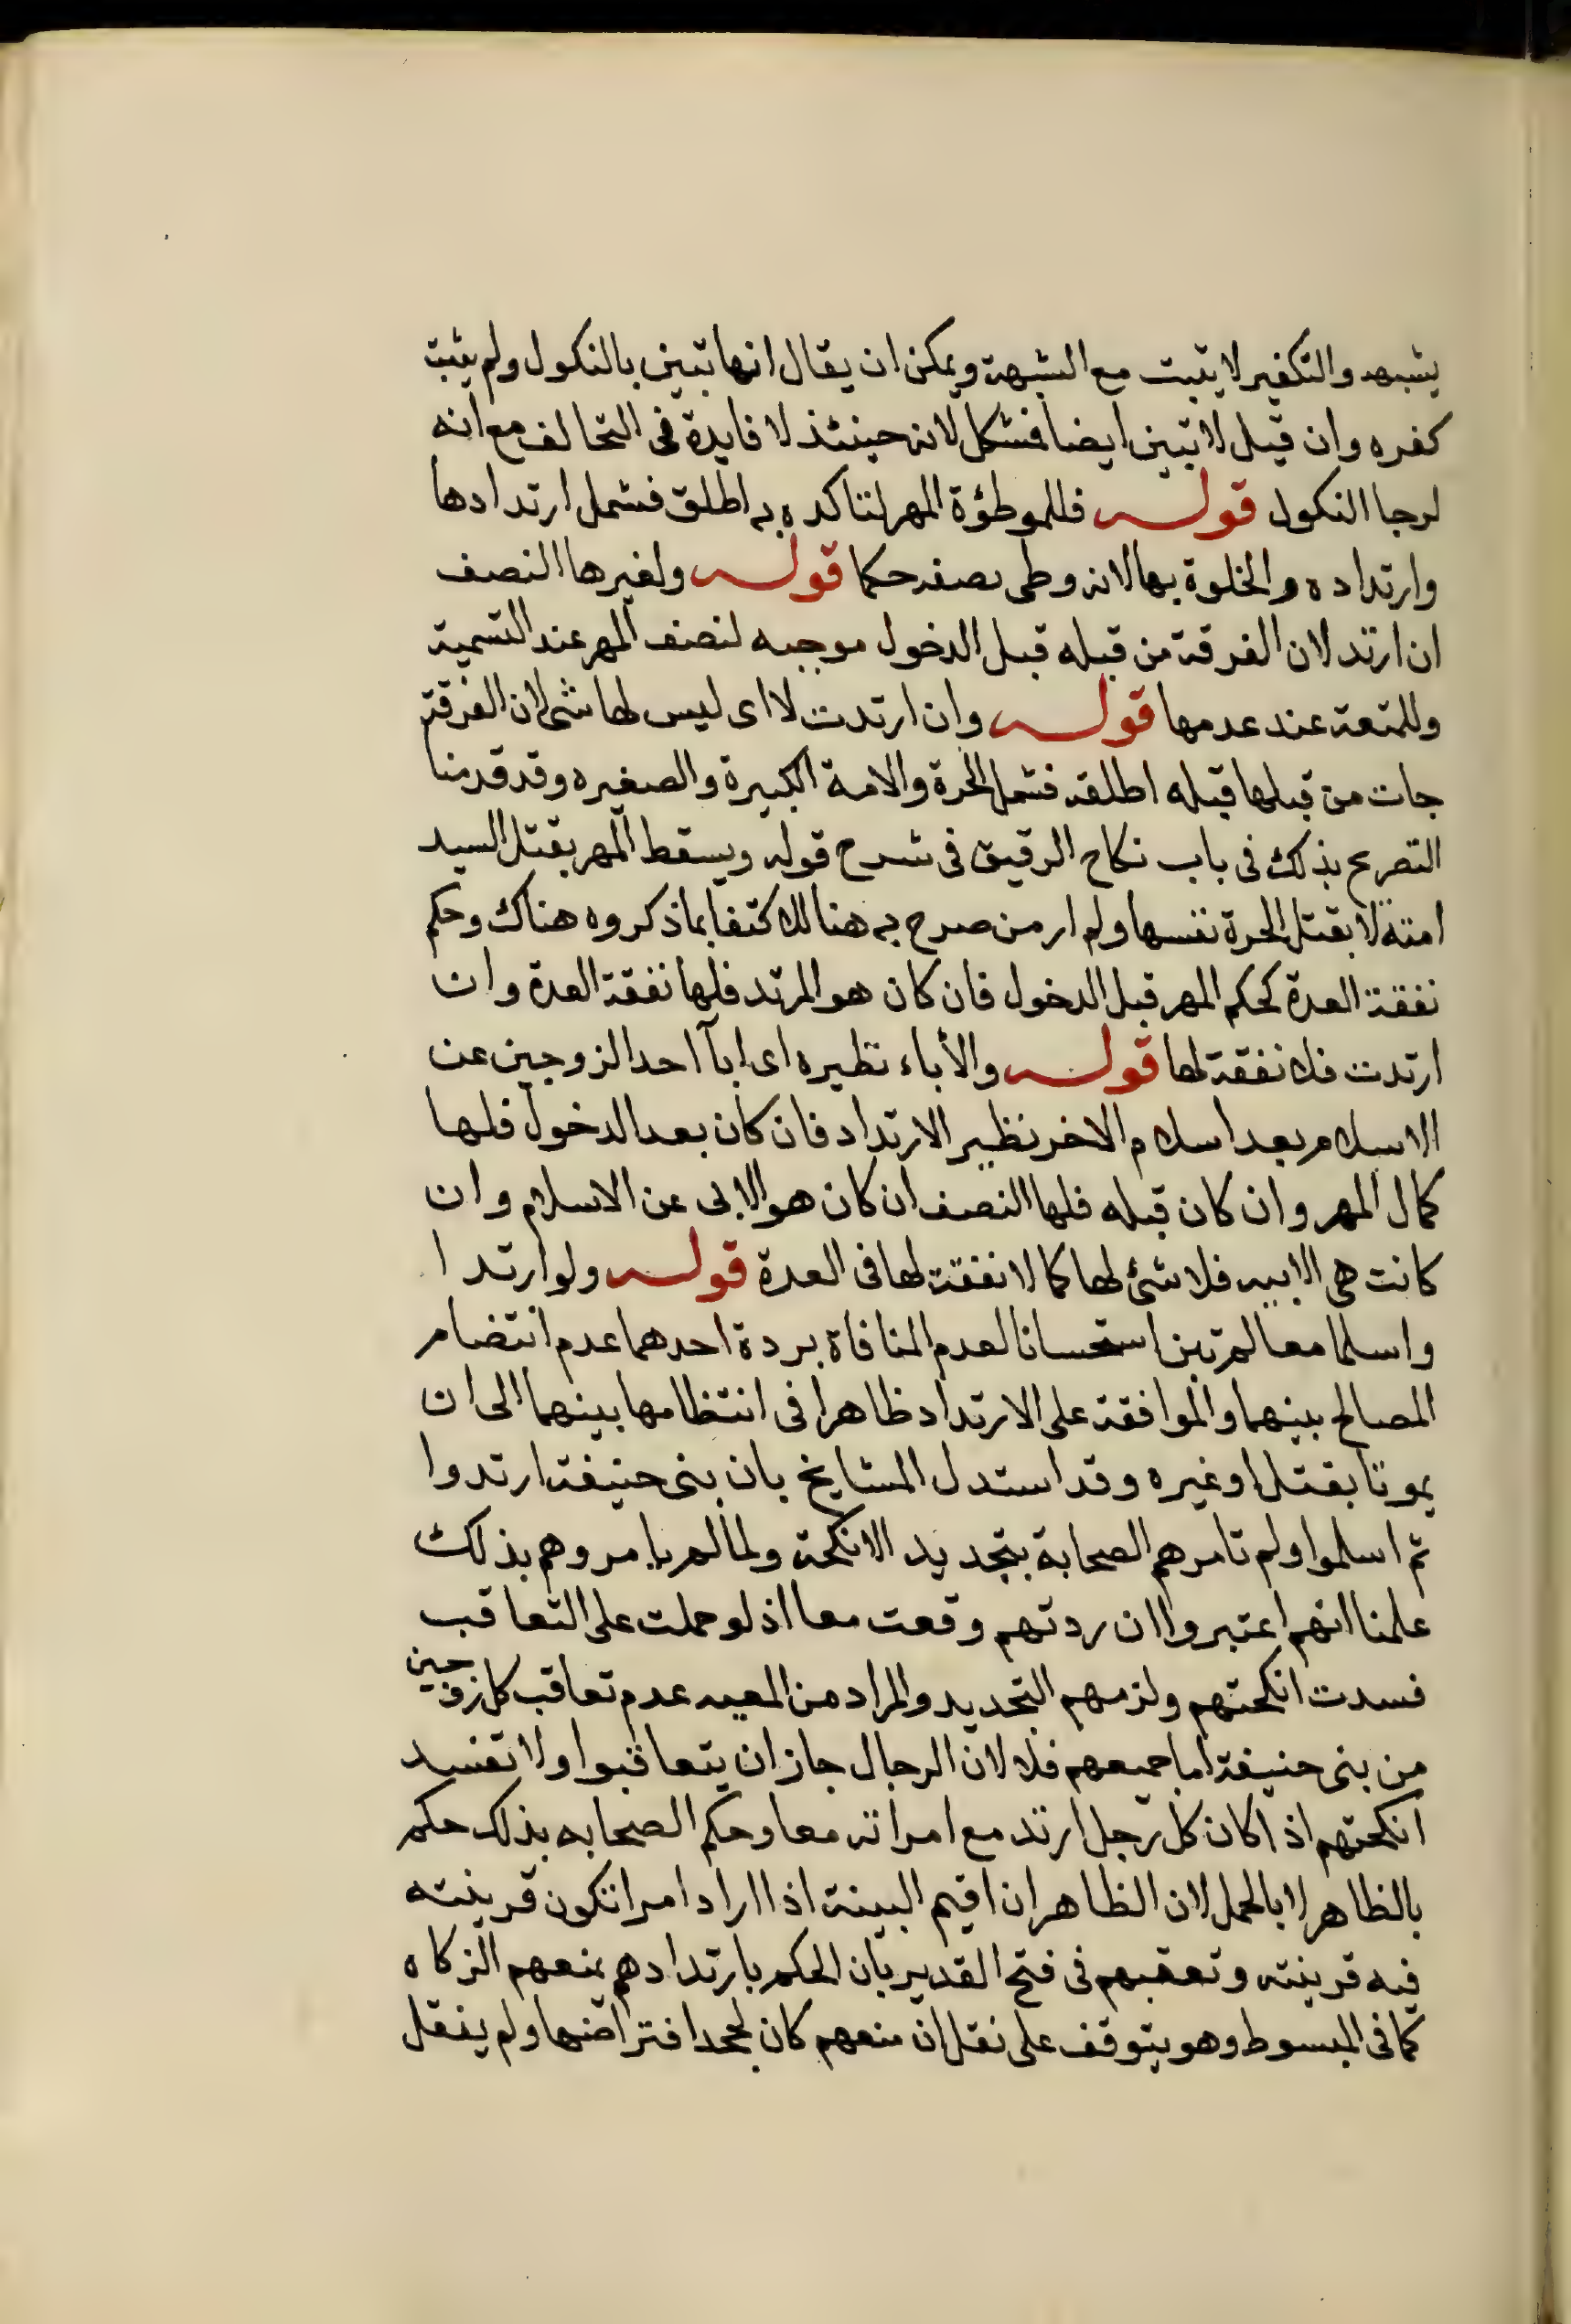 يشبهه والتكفير لا يثبت مع الشبهة ويمكن ان يقال انها تبين بالنكول ولم يثبت
كفره وان قيل لا تبين ايضا فمشكل لانه حينئذ لا فايدة فى التحالف مع انه
لرجا النكول قوله فللموطؤة المهر لتاكده به اطلق فشمل ارتدادها
وارتداده والخلوة بها لانه وطى حكما قوله ولغيرها النصف
ان ارتد لان الفرقة من قبله قبل الدخول موجبه لنصف المهر عند التسمية
وللمتعة عند عدمها قوله وان ارتدت لا اى ليس لها شى لان الفرقة
جات من قبلها قبله اطلقه فشمل الحرة والامة الكبيرة والصغيره وقد قدمنا
التصريح بذلك فى باب نكاح الرقيق فى شرح قوله ويسقط المهر بقتل السيد
امته لا بقتل الحرة نفسها ولم ار من صرح به هنا للاكتفا بما ذكروه هناك وحكم
نفقة العدة كحكم المهر قبل الدخول فان كان هو المرتد فلها نفقة العدة وان
ارتدت فلا نفقة لها قوله والأباء نظيره اى ابآ احد الزوجين عن
الاسلام بعد اسلام الاخر نظير الارتداد فان كان بعد الدخول فلها
كمال المهر وان كان قبله فلها النصف ان كان هو الابى عن الاسلام وان
كانت هى الابيه فلا شئ لها كما لا نفقة لها فى العدة قوله ولو ارتدا
واسلما معا لم تبن استحسانا لعدم المنافاة بردة احدهما عدم انتضام
المصالح بينهما والموافقة على الارتداد ظاهرا فى انتظامها بينهما الى ان
يموتا بقتل او غيره وقد استدل المشايخ بان بنى حنيفة ارتدوا
ثم اسلموا ولم تامرهم الصحابة بتجديد الانكحة ولما لم يامروهم بذلك
علمنا انهم اعتبروا ان ردتهم وقعت معا اذ لو حملت على التعاقب
فسدت انكحتهم ولزمهم التجديد والمراد من المعيه عدم تعاقب كل زوجين
من بنى حنيفة اما جميعهم فلا لان الرجال جاز ان يتعاقبوا ولا تفسد
انكحتهم اذا كان كل رجل ارتد مع امراته معا وحكم الصحابه بذلك حكم
بالظاهر لا بالحمل لان الظاهر ان اقيم البينة اذا اراد امرا تكون قرينته
فيه قرينته وتعقبهم فى فتح القدير بان الحكم بارتدادهم بمنعهم الزكاه
كما فى المبسوط وهو يتوقف على نقل ان منعهم كان لجحد افتراضها ولم ينقل